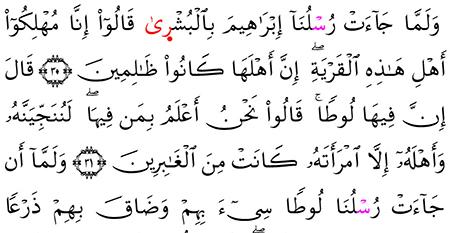 وَلَمَّا جَآءَتْ رُسْلُنَآ إِبْرَٰهِيمَ بِٱلْبُشْرِىٰ قَالُوٓا۟ إِنَّا مُهْلِكُوٓا۟
أَهْلِ هَٰذِهِ ٱلْقَرْيَةِ ۖ إِنَّ أَهْلَهَا كَانُوا۟ ظَٰلِمِينَ ۝٣٠ قَالَ
إِنَّ فِيهَا لُوطًا ۚ قَالُوا۟ نَحْنُ أَعْلَمُ بِمَن فِيهَا ۖ لَنُنَجِّيَنَّهُۥ
وَأَهْلَهُۥٓ إِلَّا ٱمْرَأَتَهُۥ كَانَتْ مِنَ ٱلْغَٰبِرِينَ ۝٣١ وَلَمَّآ أَن
جَآءَتْ رُسْلُنَا لُوطًا سِىٓءَ بِهِمْ وَضَاقَ بِهِمْ ذَرْعًا